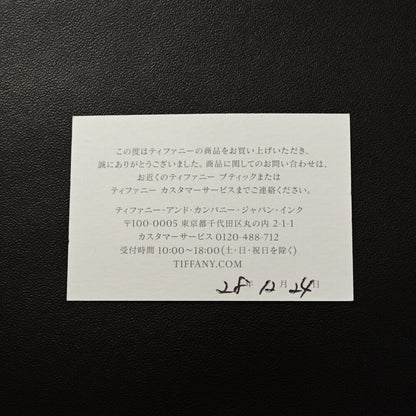 この度はティファニーの商品をお買い上げいただき、
誠にありがとうございました。商品に関してのお問い合わせは、
お近くのティファニー ブティックまたは
ティファニー カスタマーサービスまでご連絡ください。
ティファニー・アンド・カンパニー・ジャパン・インク
〒100-0005 東京都千代田区丸の内 2-1-1
カスタマーサービス 0120-488-712
受付時間 10:00～18:00(土・日・祝日を除く)
TIFFANY.COM
28年 12月 24日